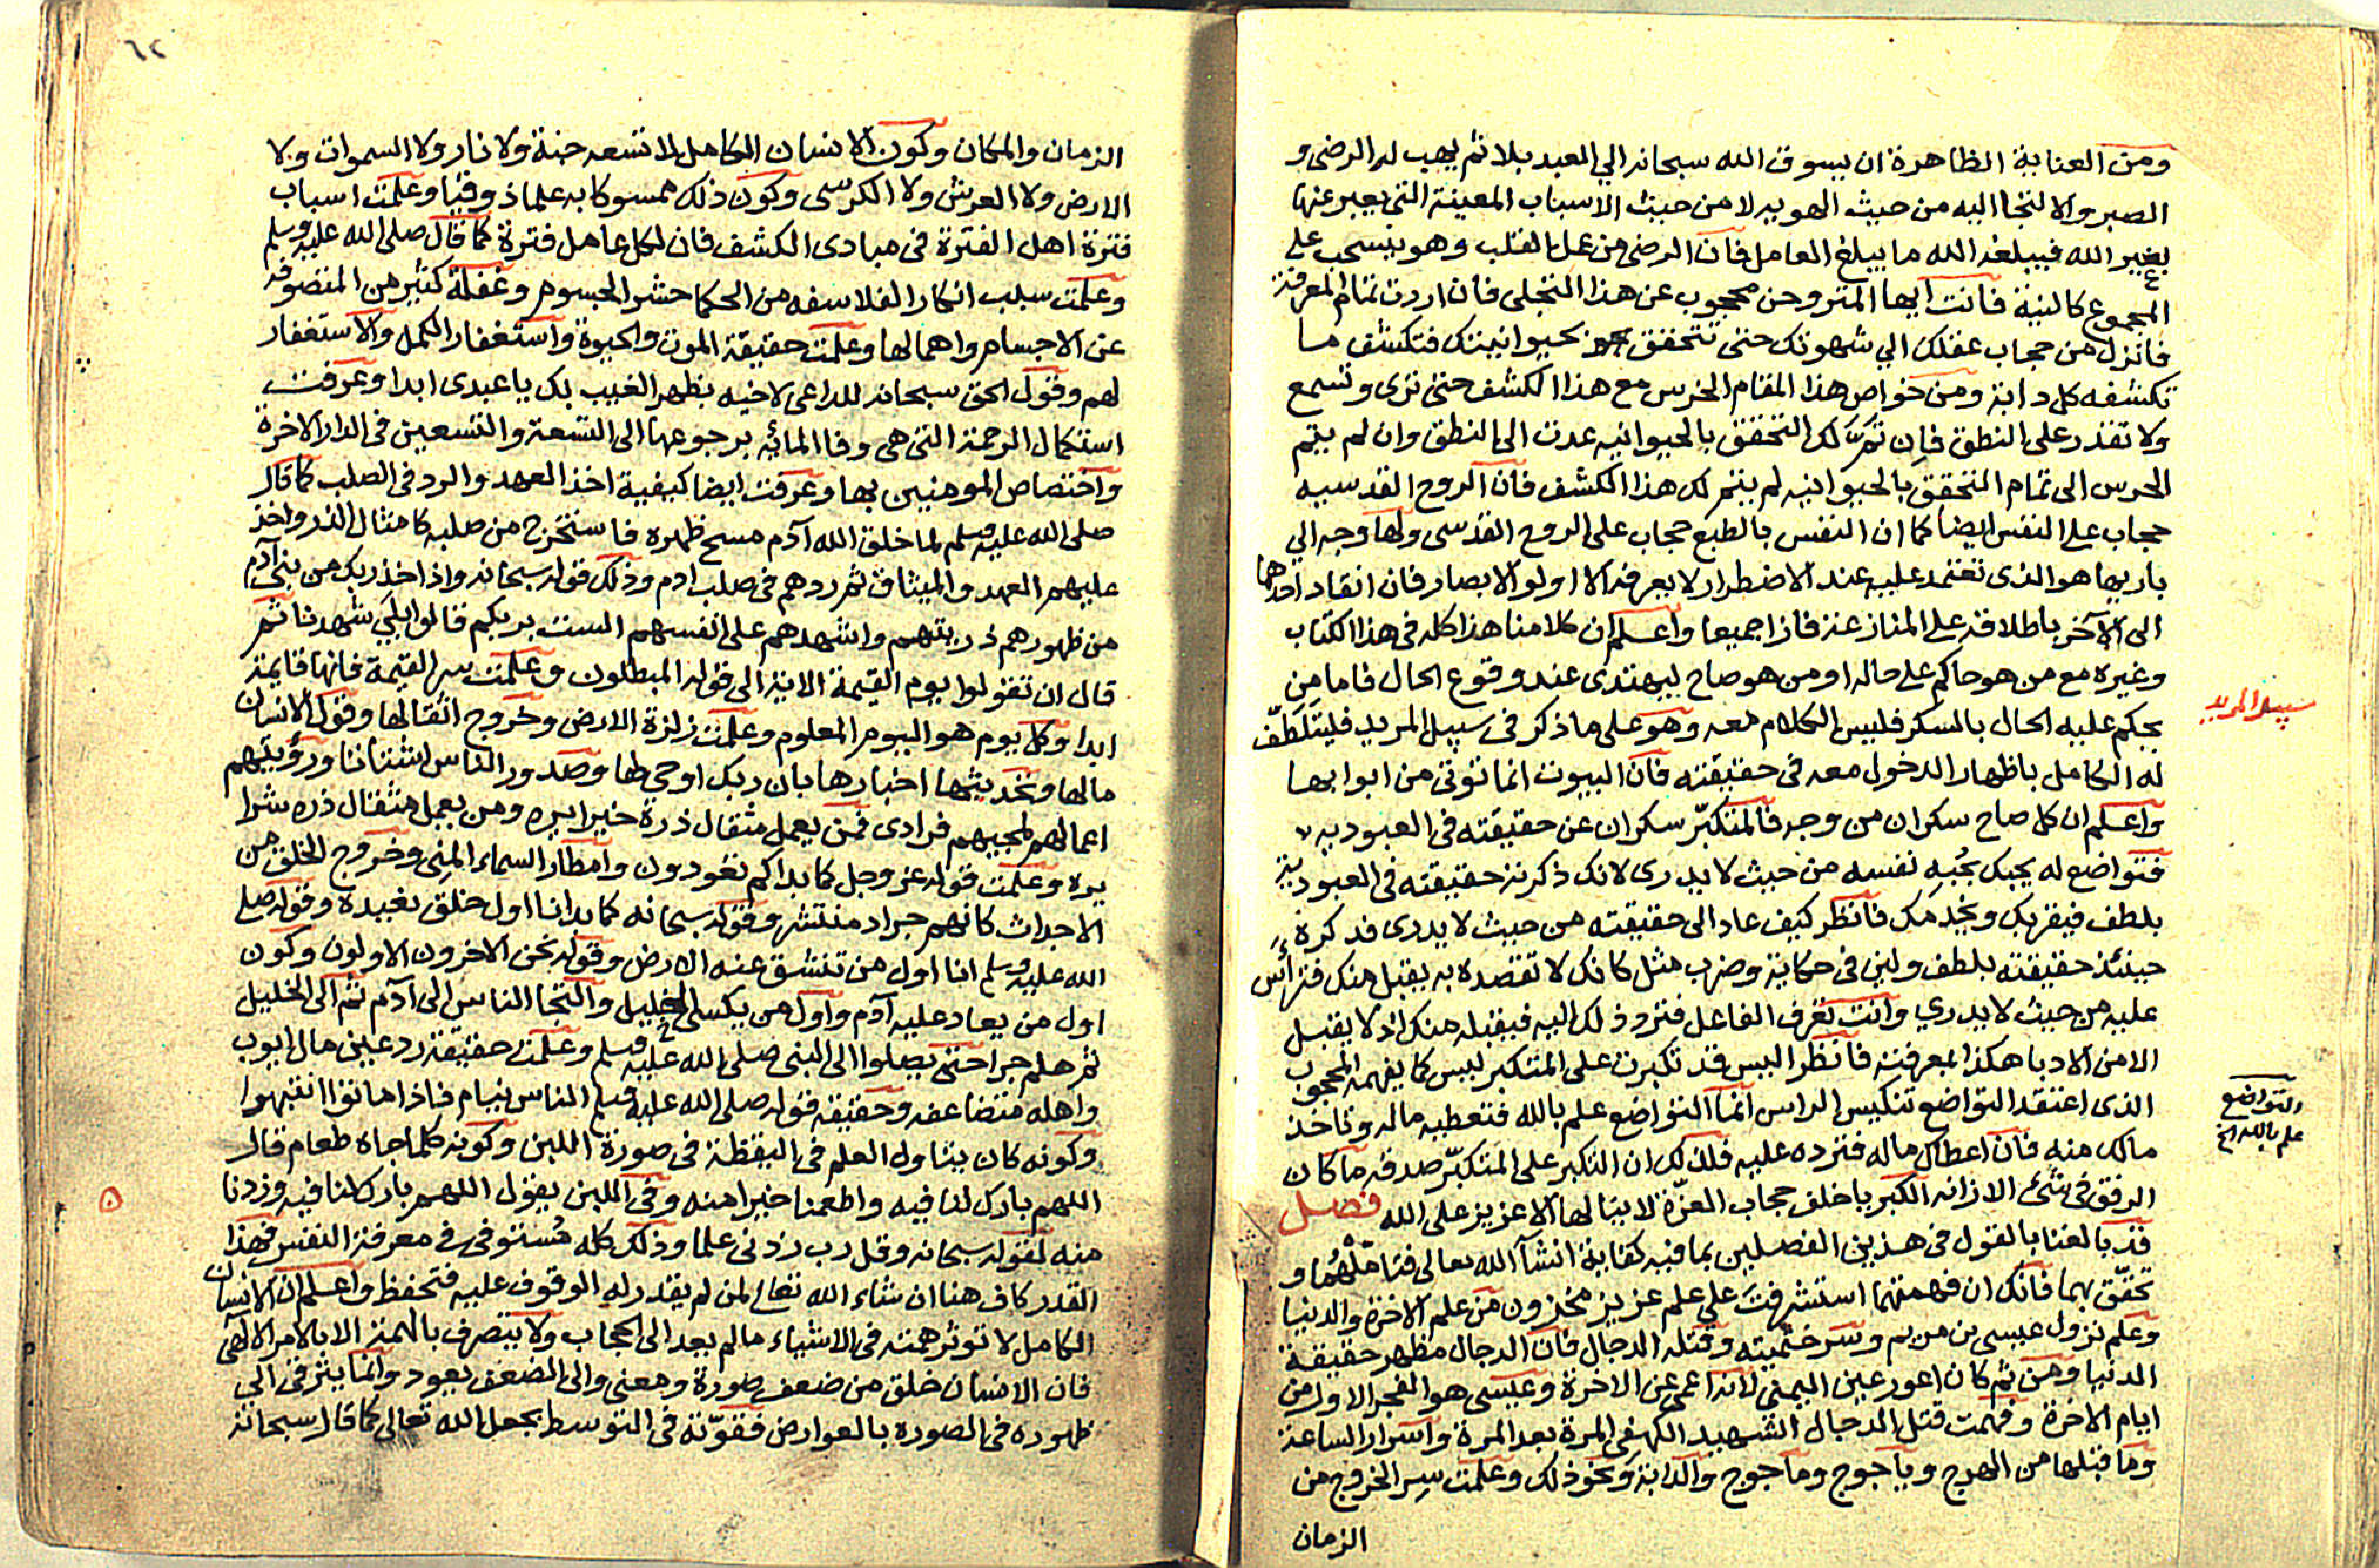 ومن العناية الظاهرة ان يسوق الله سبحانه الي العبد بلا ثم يهب له الرضى و
الصبر والالتجا اليه من حيث الهويه لا من حيث الاسباب المعينة التى يعبر عنها
بغير الله فيبلغه الله ما يبلغ العامل فان الرضى من عمل القلب وهو ينسحب على
المجموع كالنية فانت ايها المتروحن محجوب عن هذا التجلى فان اردت تمام المعرفة
فانزل من حجاب عقلك الي شهوتك حتى تتحقق بحيوانيتك فتكشف ما
تكشفه كل دابة ومن خواص هذا المقام الخرس مع هذا الكشف حتى ترى وتسمع
ولا تقدر على النطق فان تم لك التحقق بالحيوانيه عدت الى النطق وان لم يتم
الخرس الى تمام التحقق بالحيوانيه لم يتم لك هذا الكشف فان الروح القدسيه
حجاب على النفس ايضا كما ان النفس بالطبع حجاب على الروح القدسى ولها وجه الي
باريها هو الذى تعتمد عليه عند الاضطرار لا يعرفه الا اولو الابصار فان انقاد احدهما
الى الآخر باطلاقه على المنازعة فازا جميعا واعلم ان كلامنا هذا كله فى هذا الكتاب
وغيره مع من هو حاكم على حاله او من هو صاح ليهتدى عند وقوع الحال فاما من
يحكم عليه الحال بالسكر فليس الكلام معه وهو على ما ذكر فى سبيل المريد فليتلطف
سبيل المريد
له الكامل باظهار الدخول معه فى حقيقته فان البيوت انما توتى من ابوابها
واعلم ان كل صاح سكران من وجه فالمتكبّر سكران عن حقيقته فى العبوديه
فتواضع له يحبك بحُبه نفسه من حيث لا يدرى لانك ذكرته حقيقته فى العبودية
بلطف فيقربك ويخدمك فانظر كيف عاد الى حقيقته من حيث لا يدرى فذكره
حينئذ حقيقته بلطف ولين فى حكاية وضرب مثل كانك لا تقصده به يقبل منك فترأس
عليه من حيث لا يدري وانت تعرف الفاعل فترد ذلك اليه فيقبله منك اذ لا يقبل
الامن الادبا هكذا المعرفة فانظر اليس قد تكبرت على المتكبر ليس كما يفهمه المحجوب
الذى اعتقد التواضع تنكيس الراس انما التواضع علم بالله فتعطيه ماله وتاخذ
التواضع
علم بالله الخ
مالك منه فان اعطاك ماله فترده عليه فلذلك ان التكبر على المتكبّر صدقه ما كان
الرفق فى شئ الا زانه الكبريا خلف حجاب العزّة لا ينالها الا عزيز على الله فصل
قد بالغنا بالقول فى هذين الفصلين بما فيه كفاية انشآ الله تعالى فتاملهُما و
تحقّق بهما فانك ان فهمتهما استشرفت على علم عزيز مخزون من علم الاخرة والدنيا
وعلم نزول عيسى بن مريم وسر ختميته وقتله الدجال فان الدجال مظهر حقيقة
الدنيا ومن ثم كان اعور عين اليمنى لانه اعمى عن الاخرة وعيسى هو الفجر الاول من
ايام الاخرة وفهمت قتل الدجال الشهيد الكهفى المرة بعد المرة واسرار الساعة
وما قبلها من الهرج وياجوج وماجوج والدابة ونحو ذلك وعلمت سر الخروج من
الزمان
٦٢
الزمان والمكان وكون الانسان الكامل لا تسعه جنة ولا نار ولا السموات ولا
الارض ولا العرش ولا الكرسى وكون ذلك ممسوكا به علما ذوقيا وعلمت اسباب
فترة اهل الفترة فى مبادى الكشف فان لكل عامل فترة كما قال صلى الله عليه وسلم
وعلمت سبب انكار الفلاسفه من الحكما حشر الجسوم وغفلة كثير من المتصوفه
عن الاجسام واهمالها وعلمت حقيقة الموت والحيوة واستغفار الكمل والاستغفار
لهم وقول الحق سبحانه للداعى لاخيه بظهر الغيب بك يا عبدى ابدا وعرفت
استكمال الرحمة التى هى وفا المائه برجوعها الى التسعة والتسعين فى الدار الاخرة
واختصاص المومنين بها وعرفت ايضا كيفية اخذ العهد والرد فى الصلب كما قال
صلى الله عليه وسلم لما خلق الله آدم مسح ظهره فاستخرج من صلبه كامثال الذر واخذ
عليهم العهد والميثاق ثم ردهم فى صلب ادم وذلك قوله سبحانه واذ اخذ ربك من بنى آدم
من ظهورهم ذريتهم واشهدهم على انفسهم الست بربكم قالوا بلى شهدنا ثم
قال ان تقولوا يوم القيمة الاية الى قوله المبطلون وعلمت سر القيمة فانها قايمة
ابدا وكل يوم هو اليوم المعلوم وعلمت زلزة الارض وخروج اثقالها وقول الانسان
مالها وتحديثها اخبارها بان ربك اوحى لها وصدور الناس اشتاتا ورؤيتهم
اعمالهم لمجيهم فرادى فمن يعمل مثقال ذرة خيرا يره ومن يعمل مثقال ذره شرا
يره وعلمت قوله عز وجل كما بداكم تعودون وامطار السماء المنى وخروج الخلق من
الاجداث كانهم جراد منتشر وقوله سبحانه كما بدانا اول خلق نعيده وقوله صلى
الله عليه وسلم انا اول من تنشق عنه الارض وقوله نحن الاخرون الاولون وكون
اول من يعاد عليه آدم واول من يكسى الخليل والتجا الناس الى آدم ثم الى الخليل
ثم هلم جرا حتى يصلوا الى النبى صلى الله عليه وسلم وعلمت حقيقة رد عين مال ايوب
واهله متضاعفه وحقيقه قوله صلى الله عليه وسلم الناس نيام فاذا ماتوا انتبهوا
وكونه كان يتناول العلم فى اليقظة فى صورة اللبن وكونه كلما جاه طعام قال
اللهم بارك لنا فيه واطعمنا خيرا منه وفى اللبن يقول اللهم بارك لنا فيه وزدنا
منه لقوله سبحانه وقل رب زدنى علما وذلك كله مُستوفى فى معرفة النفس فهذا
القدر كاف هنا ان شاء الله تعالى لمن لم يقدر له الوقوف عليه فتحفظ واعلم ان الانسان
الكامل لا توثر همته فى الاشياء ما لم يعد الى الحجاب ولا يتصرف بالهمة الا بالامر الالهى
فان الانسان خلق من ضعف صورة ومعنى والى الضعف يعود وانما يترقى الي
ظهوره فى الصوره بالعوارض فقوّته فى التوسط بجعل الله تعالى كما قال سبحانه